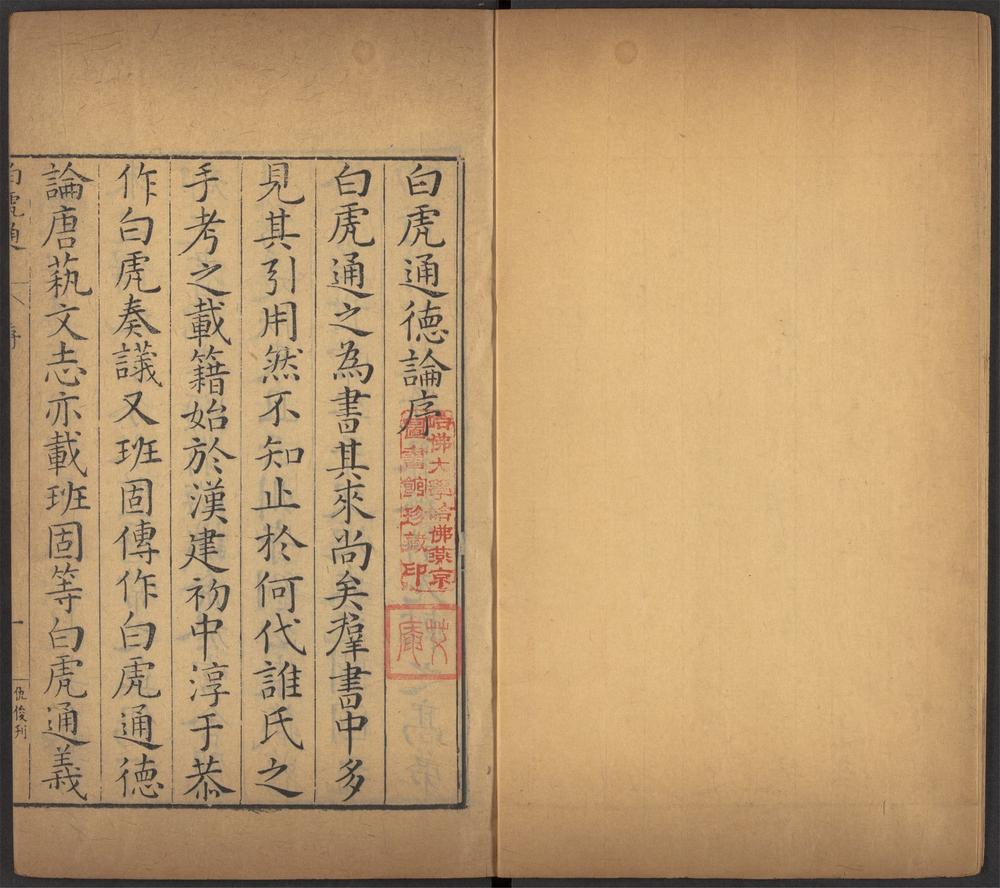 白虎通德論序
白虎通之為書其來尚矣羣書中多
見其引用然不知止於何代誰氏之
手考之載籍始於漢建初中淳于恭
作白虎奏議又班固傳作白虎通德
論唐藝文志亦載班固等白虎通義
白虎通
序
一
仇俊刋
哈佛大學哈佛燕京
圖書館珍藏印